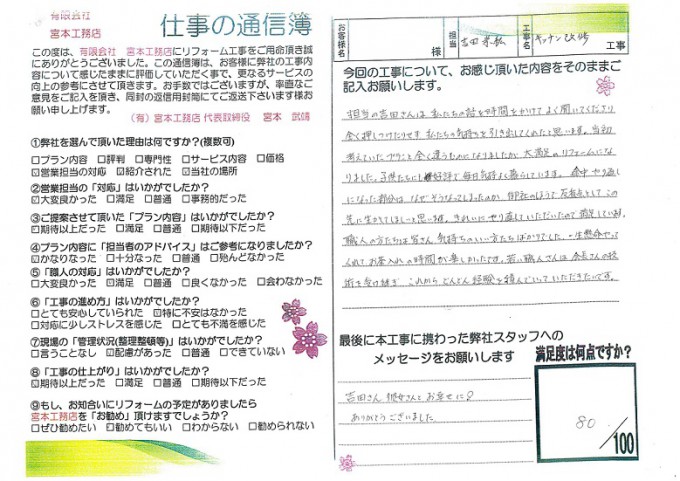 有限会社
宮本工務店
仕事の通信簿
この度は、有限会社 宮本工務店にリフォーム工事をご用命頂き誠
にありがとうございました。この通信簿は、お客様に弊社の工事内
容について感じたままに評価していただく事で、更なるサービスの
向上の参考にさせて頂きます。お手数ではございますが、率直なご
意見をご記入を頂き、同封の返信用封筒にてご返送下さいます様お
願い申し上げます。
(有)宮本工務店 代表取締役 宮本 武靖
①弊社を選んで頂いた理由は何ですか?(複数可)
□プラン内容 □評判 □専門性 □サービス内容 □価格
☑営業担当の対応 ☑紹介された ☑当社の場所
②営業担当の「対応」はいかがでしたか?
☑大変良かった □満足 □普通 □事務的だった
③ご提案させて頂いた「プラン内容」はいかがでしたか?
☑期待以上だった □満足 □普通 □期待以下だった
④プラン内容に「担当者のアドバイス」はご参考になりましたか?
☑かなりなった □十分なった □普通 □殆んどなかった
⑤「職人の対応」はいかがでしたか?
□大変良かった ☑満足 □普通 □良くなかった □会わなかった
⑥「工事の進め方」はいかがでしたか?
□とても安心していられた ☑特に不安はなかった
□対応に少しストレスを感じた □とても不満を感じた
⑦現場の「管理状況(整理整頓等)」はいかがでしたか?
□言うことなし ☑配慮があった □普通 □できていない
⑧「工事の仕上がり」はいかがでしたか?
☑期待以上だった □満足 □普通 □期待以下だった
⑨もし、お知合いにリフォームの予定がありましたら
宮本工務店を「お勧め」頂けますでしょうか?
□ぜひ勧めたい ☑勧めてもいい □わからない □勧められない
お客様名
様
担当
吉田
工事名
キッチン改修
工事
今回の工事について、お感じ頂いた内容をそのままご
記入お願いします。
担当の吉田さんは、私たちの話を時間をかけてよく聞いてくださり
全く押しつけたりせず 私たちの気持ちを引き出してくれたと思います。当初
考えていたプランと全く違うものになりましたが、大満足のリフォームにな
りました。子供たちにも好評で毎日気持よく暮らしています。途中やり直し
になった部分は、なぜそうなってしまったのか 御社のほうで反省点としてこの
先に生かしてほしいと思います。きれいにやり直していただいたので満足しています。
職人の方たちは皆さん気持ちのいい方たちばかりでした。一生懸命やっ
てくれてお茶入れの時間が楽しみでした。若い職人さんは会長さんの技
術を受け継ぎ これからどんどん経験を積んでいっていただきたいです。
最後に本工事に携わった弊社スタッフへの
メッセージをお願いします
吉田さん 彼女さんとお幸せに♡
ありがとうございました
満足度は何点ですか?
80
/100